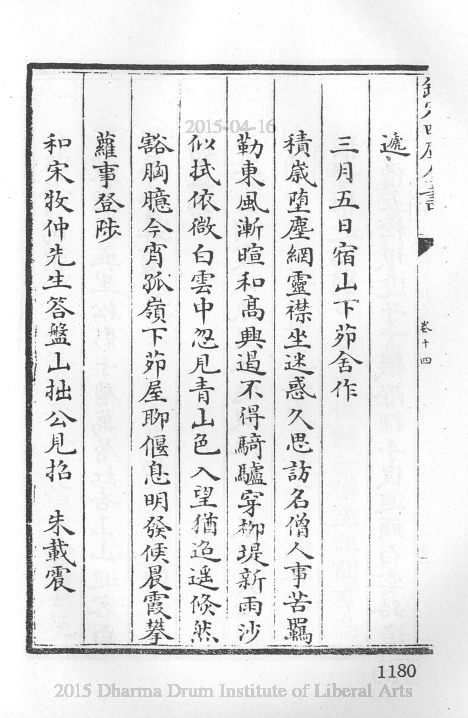 欽定四庫全書
卷十四
遞遞
三月五日宿山下茆舍作
積歲堕塵網靈襟坐迷惑久思訪名僧人事苦羈
勒東風漸暄和高興遏不得騎驢穿柳堤新雨沙
似拭依微白雲中忽見青山色入望猶迢遥倏然
豁胸臆今宵孤嶺下茆屋聊偃息明發候晨霞攀
蘿事登陟
和宋牧仲先生答盤山拙公見招　朱載震
1180
2015-04-16
2015 Dharma Drum Institute of Liberal Arts